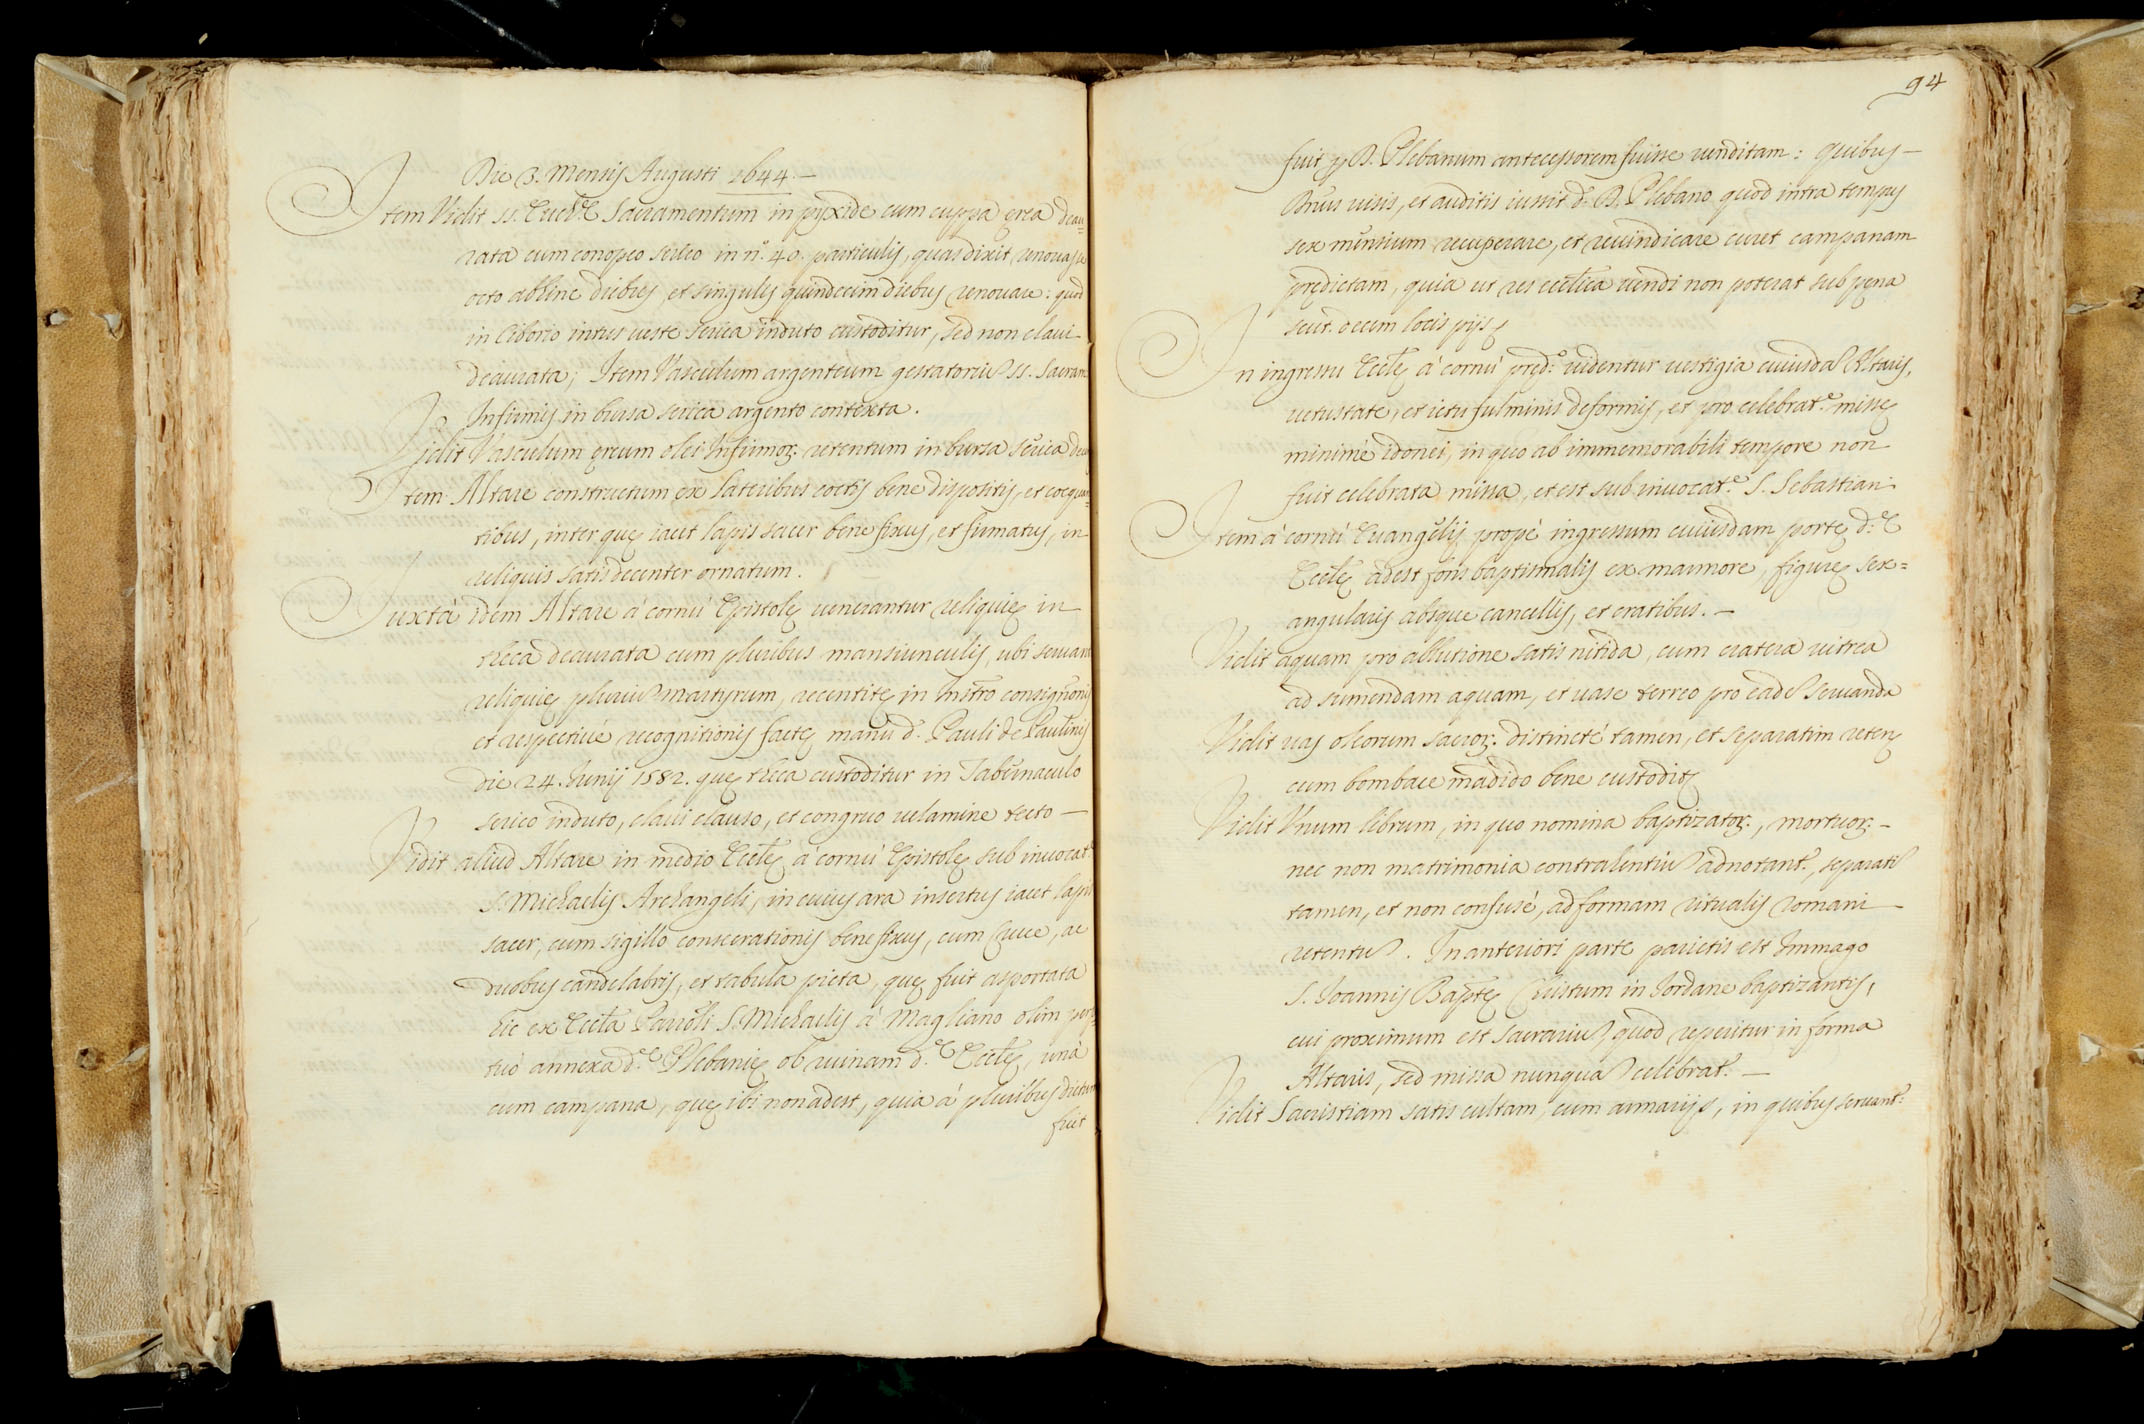 Die 3. Mensis Augusti 1644.—
Item Vidit ss. Eucd.e Sacramentum in pyxide cum cuppa ęrea deau=
rata cum conopeo serico in n.o 40. particulis, quas dixit renovasse
octo abhinc diebus, et singulis quindecim diebus renouare: quod
in Ciborio intus ueste serica induto custoditur, sed non claui
deaurata; Item Vasculum argenteum gestatoriũ ss. Sacram.
Infirmis in bursa serica argento contexta.
Vidit Vasculum ęreum olei Infirmor. retentum in bursa serica
Item Altare constructum ex lateribus coctis bene dispositis, et coęquan=
tibus, inter quę iacet lapis sacer bene fixus, et firmatus, in
reliquis satis decenter ornatum.
Iuxtà idem Altare à cornù Epistolę uenerantur reliquię in
theca deaurata cum pluribus mansiunculis, ubi seruant
reliquię pluriũ martyrum, recentitę in Instro consignõnis
et respectiué recognitionis factę manu d. Pauli de Paulinis
die 24. Iunij 1582. quę theca custoditur in Tabernaculo
serico induto, claui clauso, et congruo uelamine tecto—
Vidit aliud Altare in medio Ecclę à cornù Epistolę sub inuocat.e
S. Michaelis Archangeli, in cuius ara insertus iacet lapis
sacer, cum sigillo consecrationis bene fixus, cum Cruce, ac
duobus candelabris, et tabula picta, quę fuit asportata
hic ex Eccla Parroli S. Michaelis à Magliano olim perpe=
tuò annexa d.e Plebanię ob ruinam d.e Ecclę, unà
cum campana, quę ibi non adest, quia à pluribus dictum
fuit
94
fuit p D. Plebanum antecessorem fuisse uenditam: quibus—
Dnus uisis, et auditis iussit d. D. Plebano quod intra tempus
sex mensium recuperare, et reuindicare curet campanam
prędictam, quia ut res ecclica uendi non poterat sub pęna
scut. decem locis pijs
In ingressu Ecclę à cornù pręd.o uidentur uestigia cuiusdã Altaris,
uetustate, et ictu fulminis deformis, et pro celebrat.e missę
minimè idonei, in quo ab immemorabili tempore non
fuit celebrata missa, et est sub inuocat.e S. Sebastiani
Item à cornù Euangelij propè ingressum cuiusdam portę d.e
Ecclę adest fons baptismalis ex marmore, figurę sex=
angularis absque cancellis, et cratibus.—
Vidit aquam pro ablutione satis nitida, cum cratera uitrea
ad sumendam aquam, et uase terreo pro eadẽ seruanda
Vidit uas oleorum sacror. distinctè tamen, et separatim reten
cum bombace madido bene custodit
Vidit Vnum librum, in quo nomina baptizator., mortuor.—
nec non matrimonia contrahentiũ adnotant., separatĩ
tamen, et non confusè, ad formam ritualis romani
retentũ. In anteriori parte parietis est Immago
S. Ioannis Baptę Christum in Iordane baptizantis,
cui proximum est sacrariũ, quod reperitur in forma
Altaris, sed missa nunquã celebrat.—
Vidit Sacristiam satis cultam, cum armarijs, in quibus seruant.